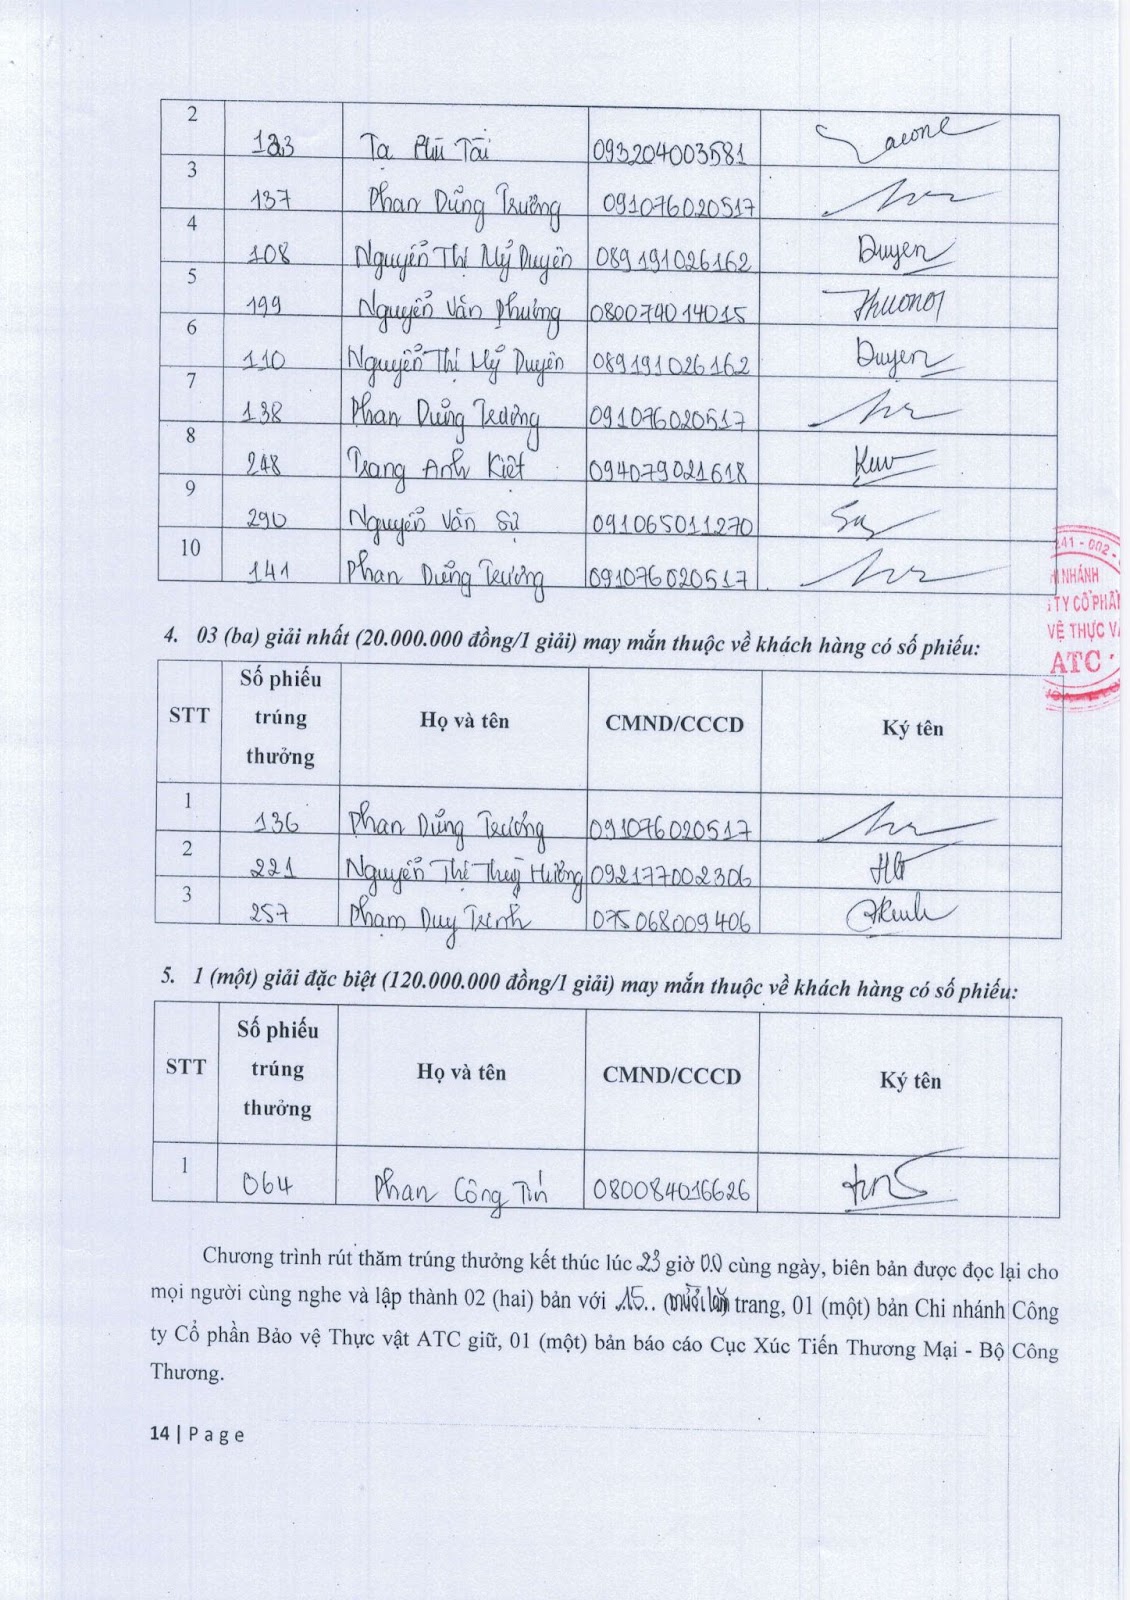 2 123 Tạ Phú Tài 093204003581
3 137 Phan Dũng Trường 091076020517
4 108 Nguyễn Thị Mỹ Duyên 089191026162 Duyen
5 199 Nguyễn Văn Phương 080074014015
6 110 Nguyễn Thị Mỹ Duyên 089191026162 Duyen
7 138 Phan Dũng Trường 091076020517
8 248 Trang Anh Kiệt 094079021618
9 290 Nguyễn Văn Sự 091065011270
10 141 Phan Dũng Trường 091076020517
241 - 002 -
NHÁNH
TY CỔ PHẦN
VỆ THỰC VẬ
ATC
4. 03 (ba) giải nhất (20.000.000 đồng/1 giải) may mắn thuộc về khách hàng có số phiếu:
STT Số phiếu trúng thưởng Họ và tên CMND/CCCD Ký tên
1 136 Phan Dũng Trường 091076020517
2 221 Nguyễn Thị Thuỳ Hường 092177002306
3 257 Phạm Duy Trinh 075068009406
5. 1 (một) giải đặc biệt (120.000.000 đồng/1 giải) may mắn thuộc về khách hàng có số phiếu:
STT Số phiếu trúng thưởng Họ và tên CMND/CCCD Ký tên
1 064 Phan Công Tín 080084016626
Chương trình rút thăm trúng thưởng kết thúc lúc 23 giờ 00 cùng ngày, biên bản được đọc lại cho
mọi người cùng nghe và lập thành 02 (hai) bản với .15.. (mười lăm) trang, 01 (một) bản Chi nhánh Công
ty Cổ phần Bảo vệ Thực vật ATC giữ, 01 (một) bản báo cáo Cục Xúc Tiến Thương Mại - Bộ Công
Thương.
14 | P a g e